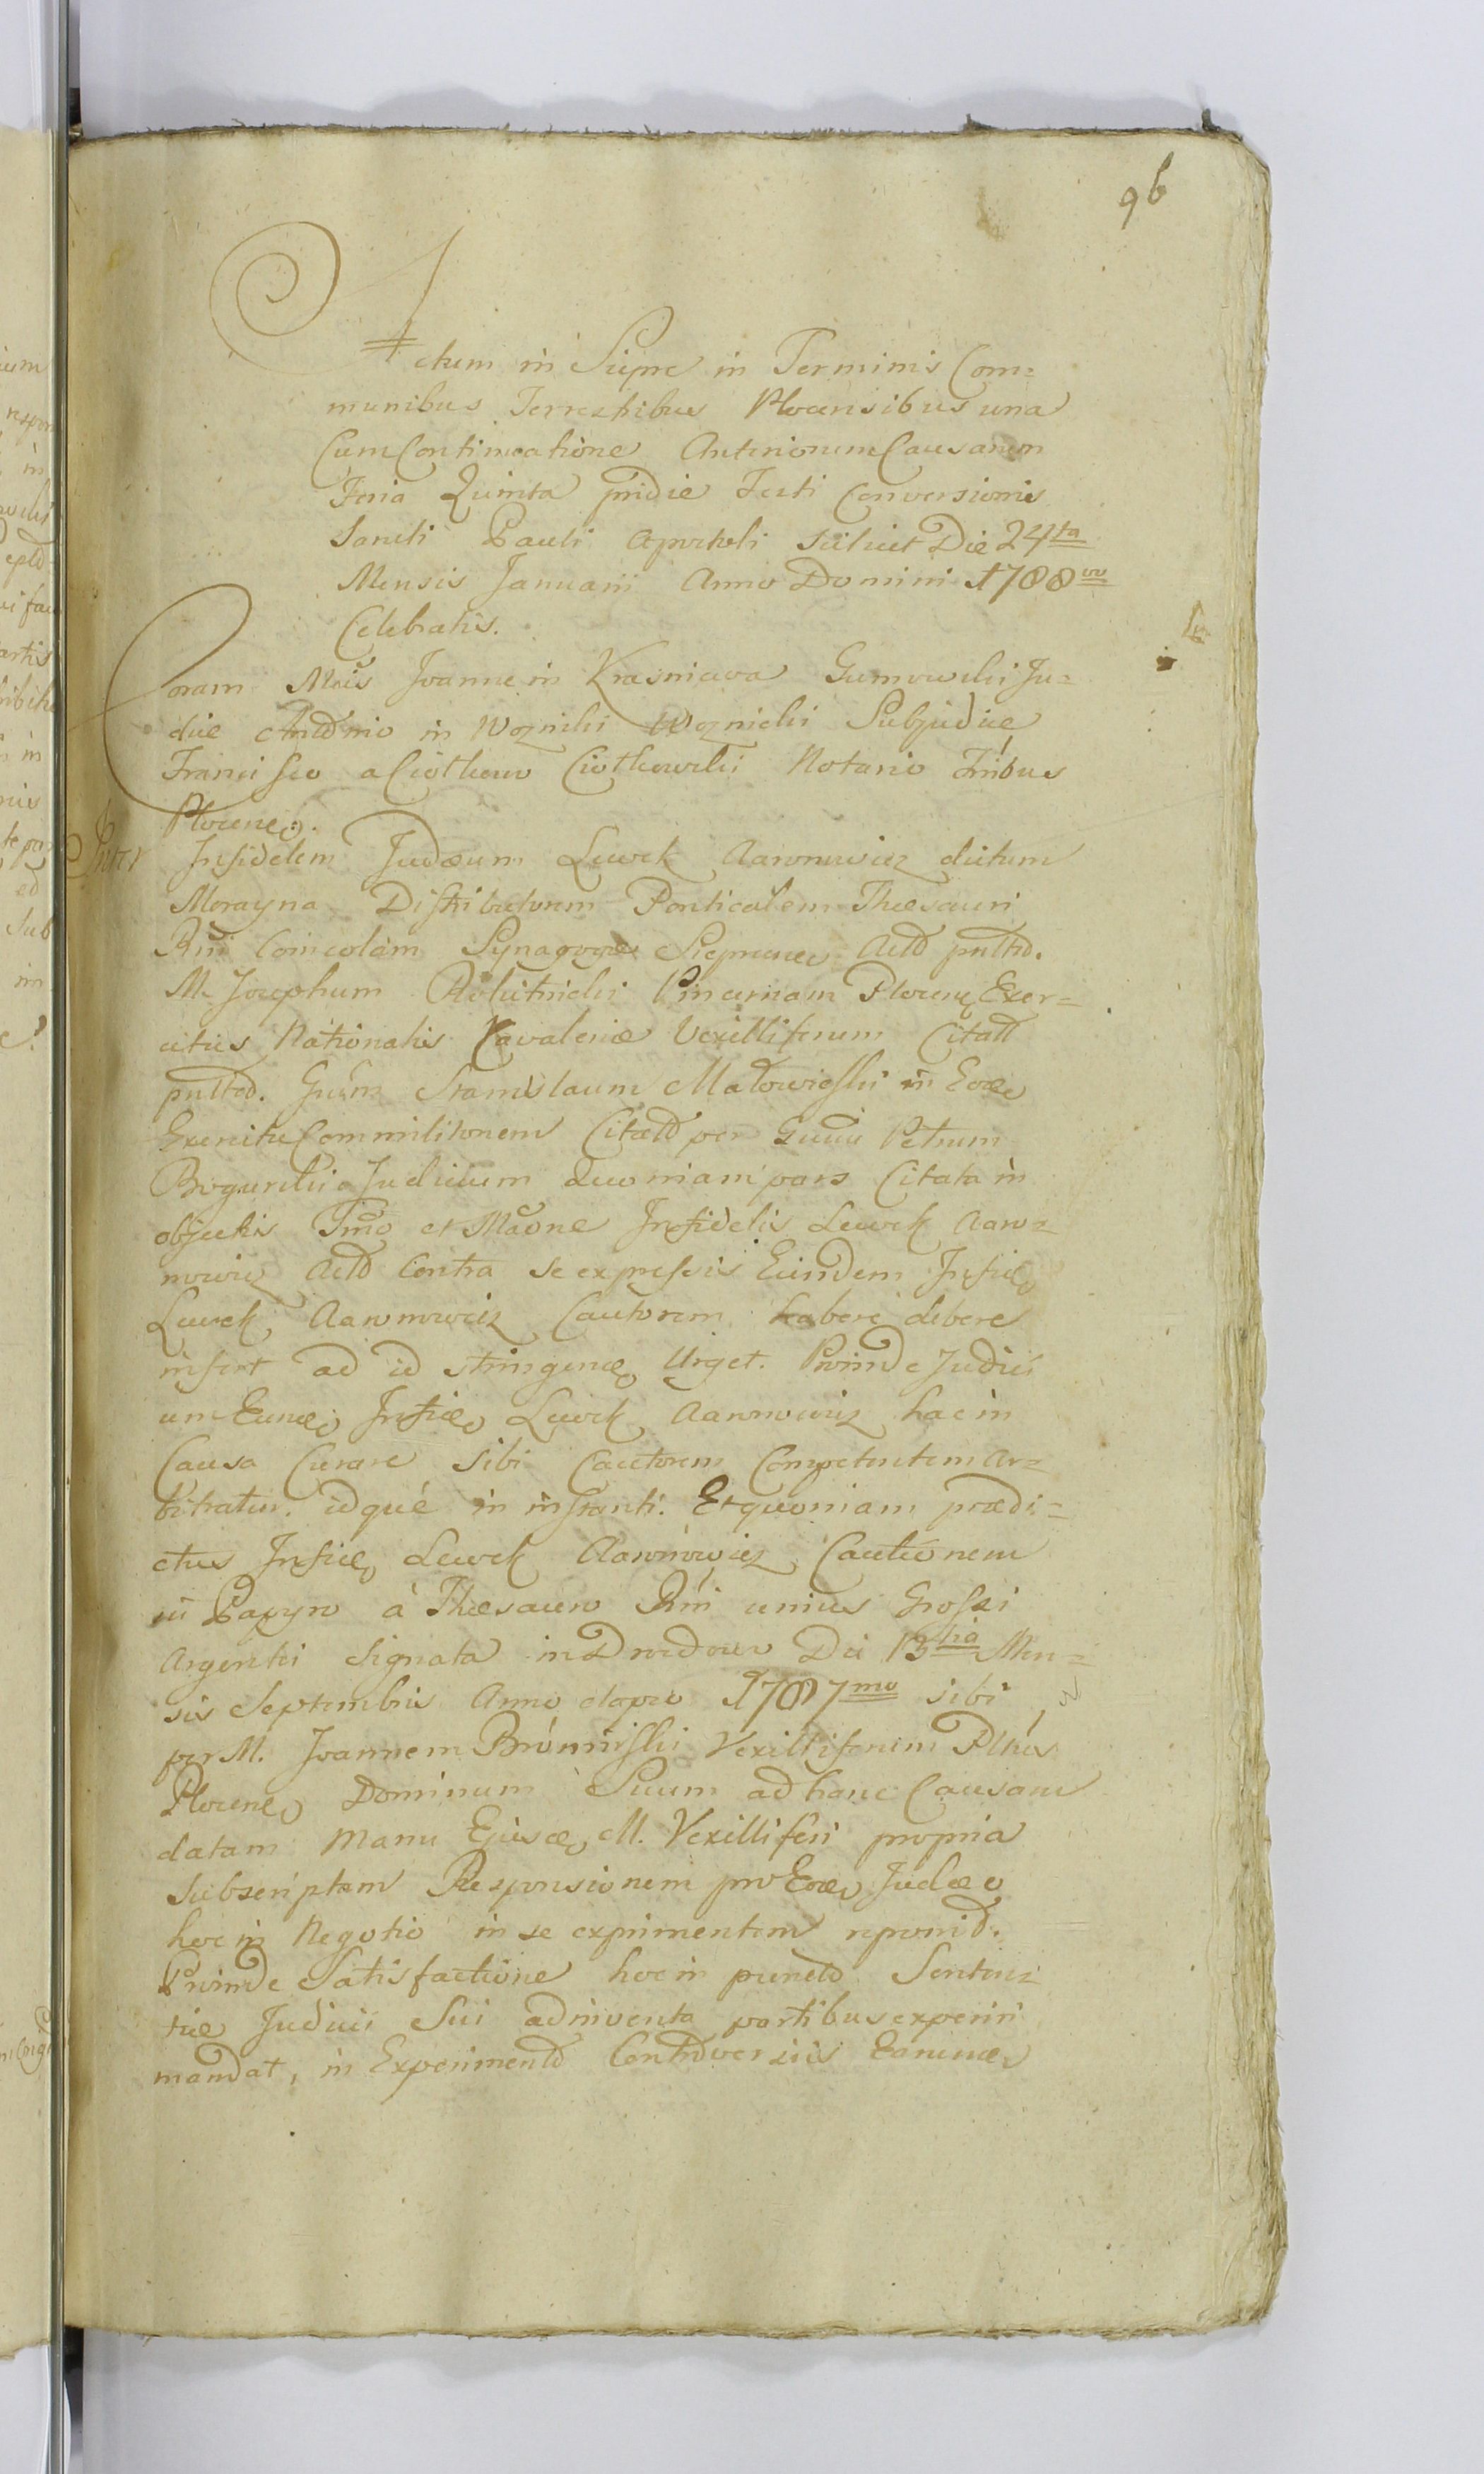 96
Actum in Sieprc in Terminis Com=
munibus Terrestribus Plocensibus una
Cum Continuatione Anteriorum Causarum
Feria Quinta pridie Festi Conversionis
Sancti Pauli Apostoli scilicet Die 24ta
Mensis Januarii Anno Domini 1788vo
Celebratis.
Coram Mcis Joanne in Krasniewa Gumowski Ju=
dice Antonio in Woznicki Woznicki Subjudice
Francisco a Ciotkowo Ciotkowski Notario Tribus
Plocen.
Inter Infidelem Judæum Lewek Aaronowicz dictum
Morayna Distributorem Ponticalem Thesauri
Rni Coincolam Synagogæ Sieprcen Actd pnltd.
M. Josephum Rokitnicki Pincernam Plocen Exer=
citus Nationalis Kavaleriæ Vexilliferum Citatd
pultod. Gnum Stanislaum Malowieski in Eod
Exercitu Commilitonem Citatd per Gnum Petrum
Bogurski. Judicium Quoniam pars Citata in
objectis Tmo et Maone Infidelis Lewek Aaro=
nowicz Actd Contra se expressis Eundem Infid
Lewek Aaronowicz Cautorem habere debere
infert ad id stringend Urget. Proinde Judici
um Eund Infid Lewek Aaronowicz hac in
Causa Curare Sibi Cautorem Competentem Ar=
bitratur. idque in instanti. Et quoniam prædi=
ctus Infid Lewek Aaronowicz Cautionem
in Papyro a Thesauro Rni unius Grossi
Argentei Signata in Drodowo Die 13tia Men=
sis Septembris Anno elapso 1787mo sibi
per M. Joannem Bromirski Vexilliferum Pltus
Plocen Dominum Suum ad hanc Causam
datam Manu Ejusd M. Vexilliferi propria
Subscriptam Responsionem pro Eod Judæo
hoc in Negotio in se exprimentem reponid.
Proinde Satisfactione hoc in puncto Senten=
tiæ Judicii Sui adinventa partibus experiri
mandat, in Experimento Controversiis Earund